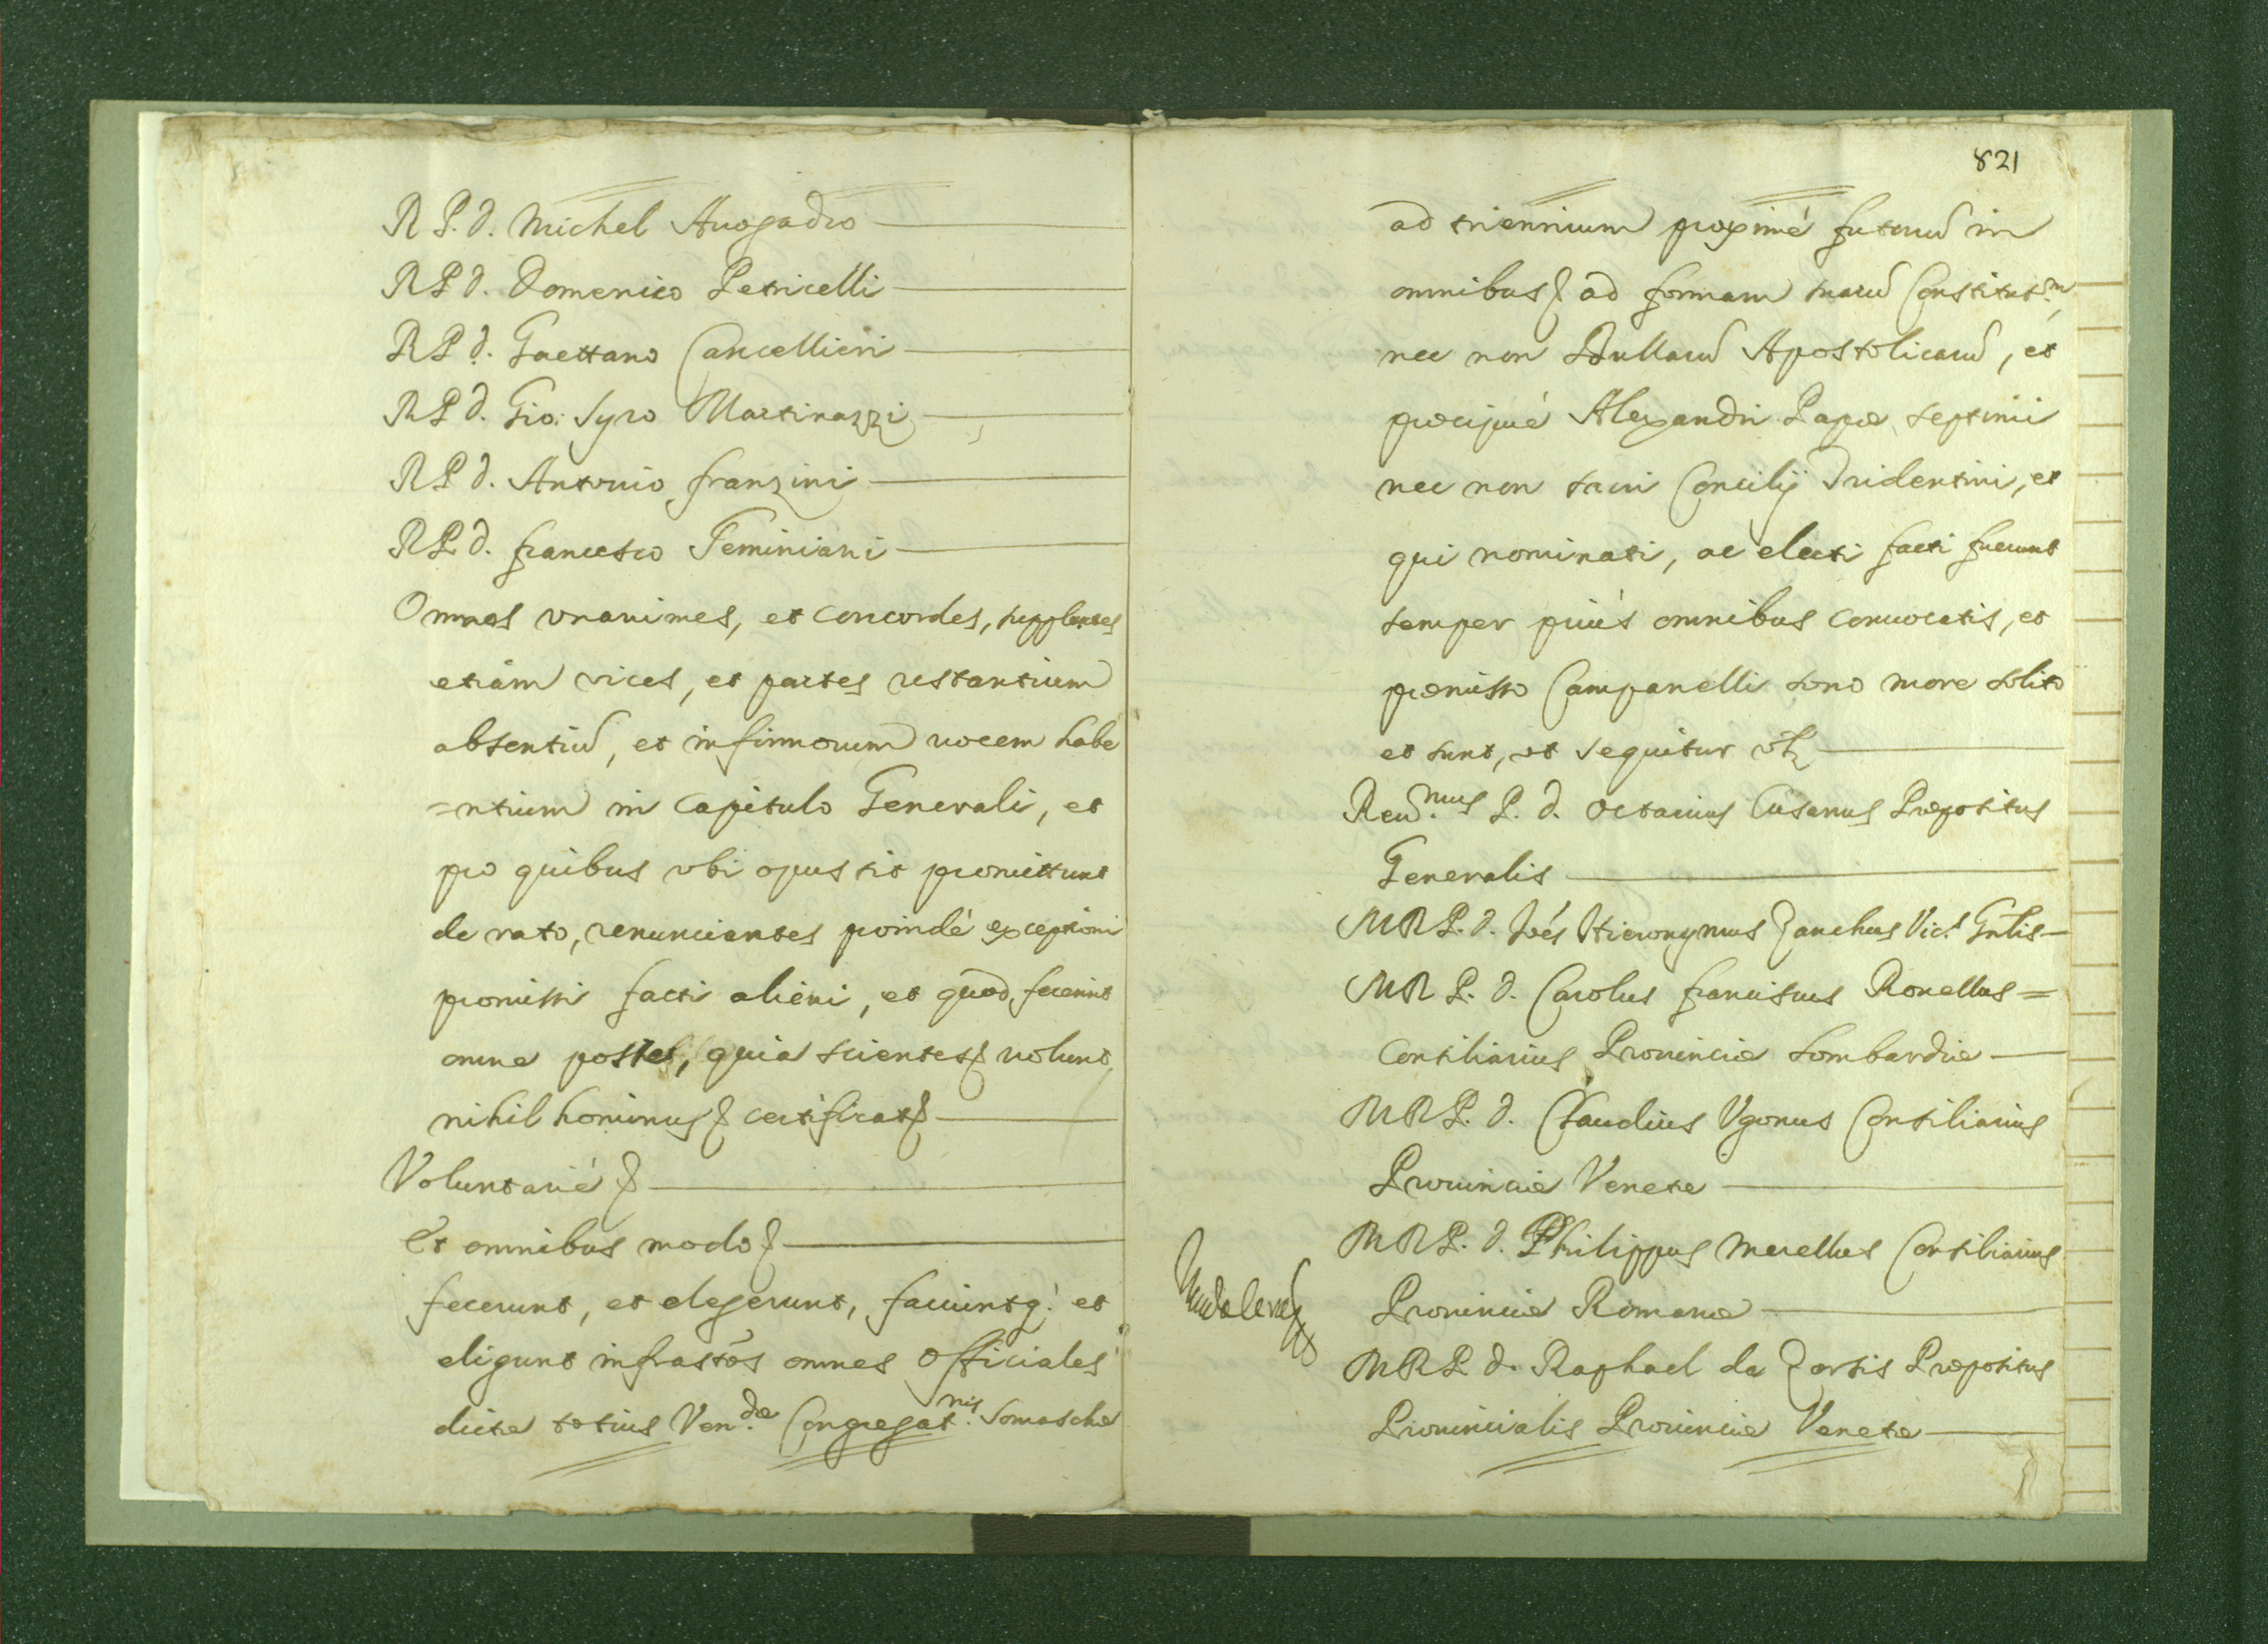 R P. d. Michel Auogadro
R P d. Domenico Petricelli
R P d. Gaettano Cancellieri
R P d. Gio: Syro Martinazzi
R P d. Antonio franzini
R P d. francesco Geminiani
Omnes vnanimes, et concordes, supplentes
etiàm vices, et partes restantium
absentiũ, et infirmorum uocem habe
=ntium in Capitulo Generali, et
pro quibus vbi opus sit promittunt
de rato, renunciantes proindè exceptioni
promissi facti alieni, et quod fecerint
omne posse, quia scientes uolunt
nihilhominus certificat
Voluntariè
Et omnibus modo
fecerunt, et elegerunt, faciuntq; et
eligunt infrastõs omnes Officiales
dictæ totius Ven.dæ Congregat.nis Somaschæ
821
ad triennium proximè futurũ in
omnibus ad formam suarũ Constitut.m
nec non Bullarũ Apostolicarũ, et
præcipuè Alexandri Papæ septimi
nec non sacri Concilij Tridentini, et
qui nominati, ac electi facti fuerunt
semper priùs omnibus conuocatis, et
præmisso Campanelli sono more solito
et sunt, vt sequitur vtz
Reu.mus P. d. Octauius Cusanus Præpositus
Generalis
M R P. d. Joẽs Hieronymus Zanchus Vic.s Gñlis
M R P. d. Carolus franciscus Rouellus =
Consiliarius Prouinciæ Lombardiæ
M R P. d. Claudius Vgonus Consiliarius
Prouinciæ Venetæ
M R P. d. Philippus Merellus Consiliarius
Prouinciæ Romanæ
M R P d. Raphael de Zortis Præpositus
Prouincialis Prouinciæ Venetæ